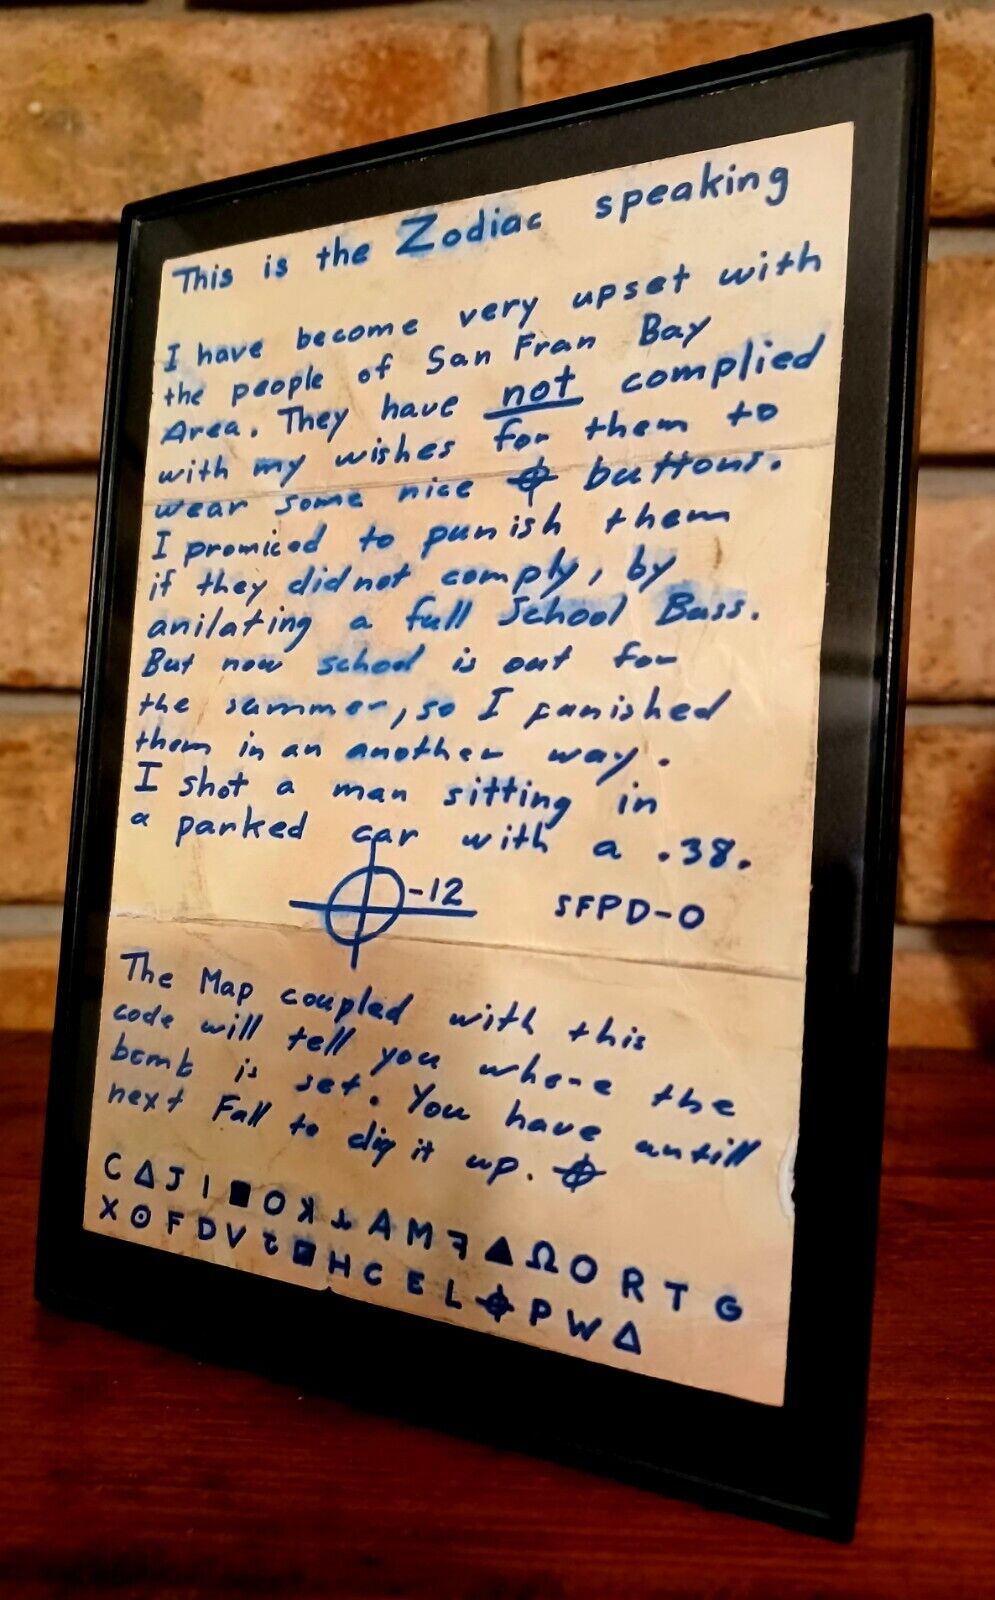 This is the Zodiac speaking
I have become very upset with
the people of San Fran Bay
Area. They have not complied
with my wishes for them to
wear some nice ⌖ buttons.
I promiced to punish them
if they did not comply, by
anilating a full School Buss.
But now school is out for
the summer, so I punished
them in an another way.
I shot a man sitting in
a parked car with a .38.
⌖-12 SFPD-0
The Map coupled with this
code will tell you where the
bomb is set. You have untill
next Fall to dig it up. ⌖
C Δ J I ■ O ʞ ⅄ A M ꟻ ▲ Ω O R T G
X ⊙ F D V ▣ H C E L ⌖ P W Δ